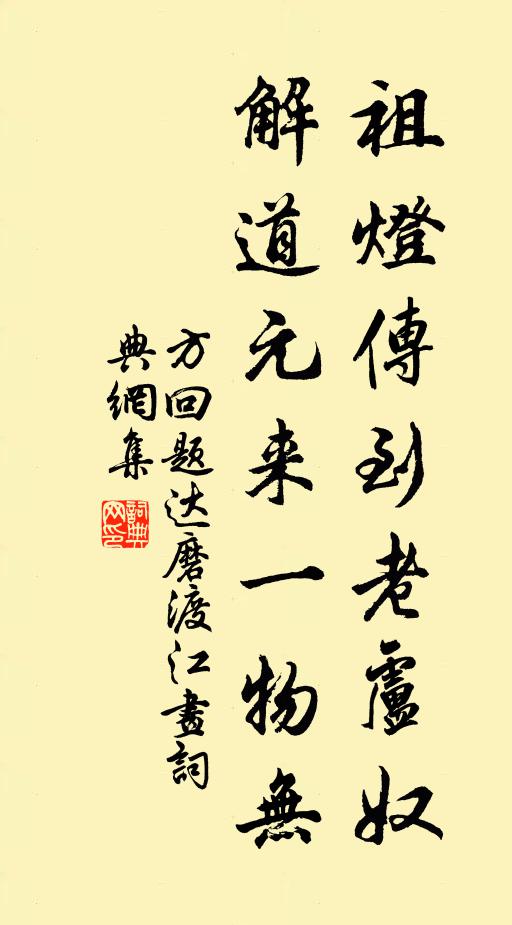 祖燈傳到老廬奴
解道元来一物無
方回题达磨渡江畫詞
典網集
詞典
网印